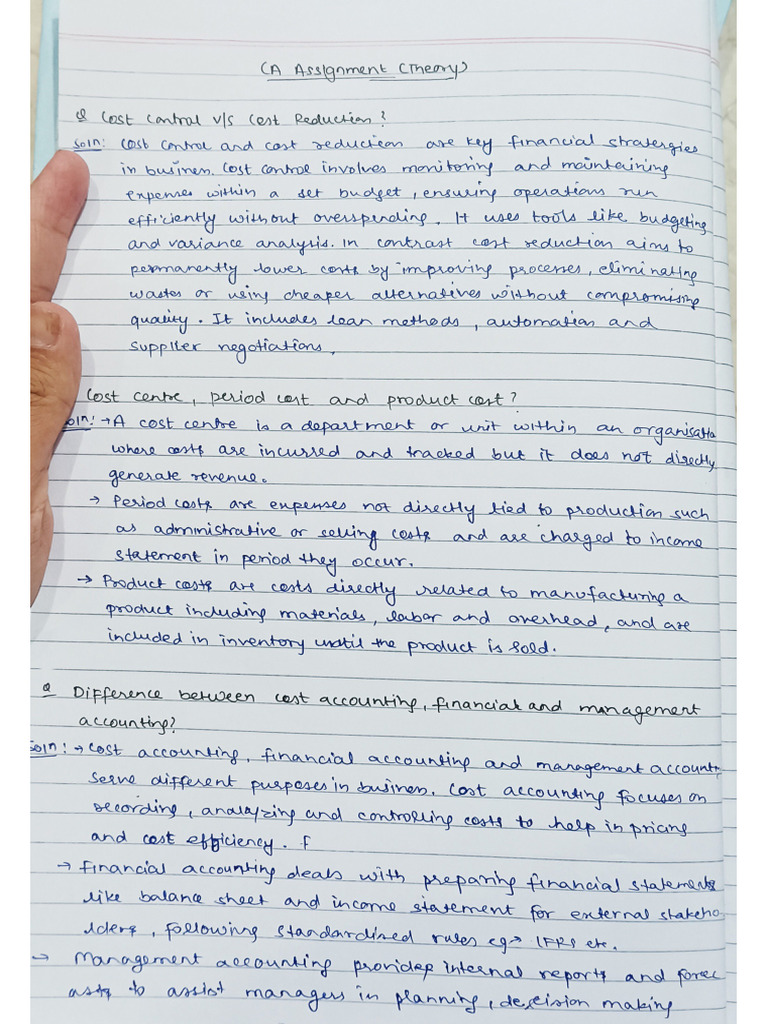 CA Assignment (Theory)
Q Cost Control v/s Cost Reduction?
Soln: Cost Control and cost reduction are key financial stratergies
in business. Cost control involves monitoring and maintaining
expenses within a set budget, ensuring operations run
efficiently without overspending. It uses tools like budgeting
and variance analysis. In contrast cost reduction aims to
permanently lower costs by improving processes, eliminating
wastes or using cheaper alternatives without compromising
quality. It includes lean methods, automation and
supplier negotiations.
Cost centre, period cost and product cost?
Soln: → A cost centre is a department or unit within an organisatio
where costs are incurred and tracked but it does not directly
generate revenue.
→ Period costs are expenses not directly tied to production such
as administrative or selling costs and are charged to income
statement in period they occur.
→ Product costs are costs directly related to manufacturing a
product including materials, labor and overhead, and are
included in inventory until the product is sold.
Q Difference between cost accounting, financial and management
accounting?
Soln: → Cost accounting, financial accounting and management accounti
serve different purposes in business. Cost accounting focuses on
recording, analyzing and controlling costs to help in pricing
and cost efficiency. f
→ Financial accounting deals with preparing financial statements
like balance sheet and income statement for external stakeho
lders, following standardized rules eg → IFRS etc.
→ Management accounting provides internal reports and forec
asts to assist managers in planning, decision making